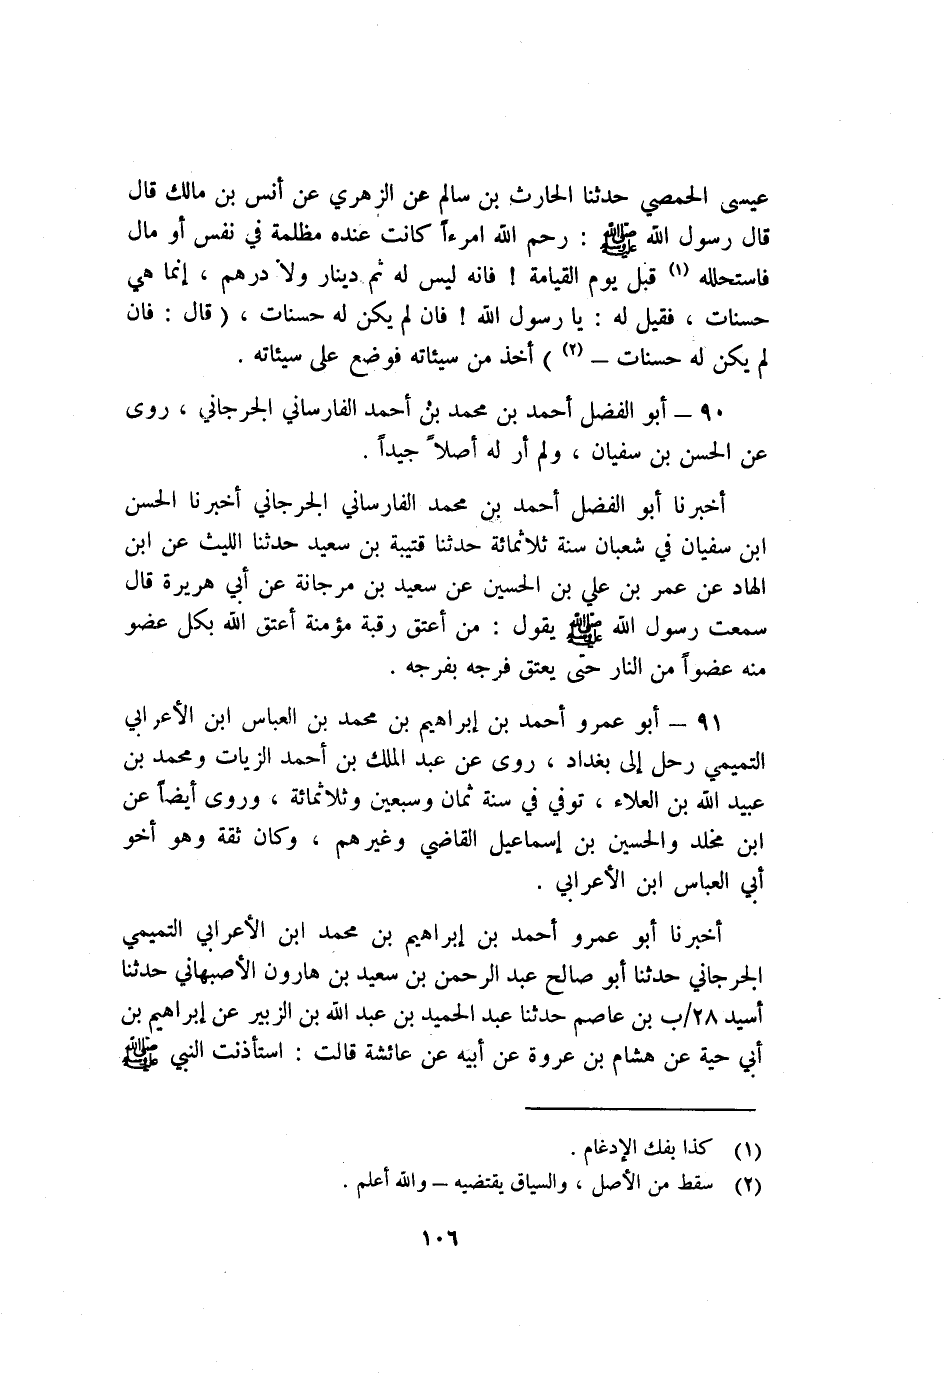 عيسى الحمصي حدثنا الحارث بن سالم عن الزهري عن أنس بن مالك قال
قال رسول الله ﷺ : رحم الله امرءاً كانت عنده مظلمة في نفس أو مال
فاستحلله (١) قبل يوم القيامة ! فانه ليس له ثم دينار ولا درهم ، إنما هي
حسنات ، فقيل له : يا رسول الله ! فان لم يكن له حسنات ، ( قال : فان
لم يكن له حسنات – (٢) ) أخذ من سيئاته فوضع على سيئاته .
٩٠ – أبو الفضل أحمد بن محمد بن أحمد الفارساني الجرجاني ، روى
عن الحسن بن سفيان ، ولم أر له أصلاً جيداً .
أخبرنا أبو الفضل أحمد بن محمد الفارساني الجرجاني أخبرنا الحسن
ابن سفيان في شعبان سنة ثلاثمائة حدثنا قتيبة بن سعيد حدثنا الليث عن ابن
الهاد عن عمر بن علي بن الحسين عن سعيد بن مرجانة عن أبي هريرة قال
سمعت رسول الله ﷺ يقول : من أعتق رقبة مؤمنة أعتق الله بكل عضو
منه عضواً من النار حتى يعتق فرجه بفرجه .
٩١ – أبو عمرو أحمد بن إبراهيم بن محمد بن العباس ابن الأعرابي
التميمي رحل إلى بغداد ، روى عن عبد الملك بن أحمد الزيات ومحمد بن
عبيد الله بن العلاء ، توفي في سنة ثمان وسبعين وثلاثمائة ، وروى أيضاً عن
ابن مخلد والحسين بن إسماعيل القاضي وغيرهم ، وكان ثقة وهو أخو
أبي العباس ابن الأعرابي .
أخبرنا أبو عمرو أحمد بن إبراهيم بن محمد ابن الأعرابي التميمي
الجرجاني حدثنا أبو صالح عبد الرحمن بن سعيد بن هارون الأصبهاني حدثنا
أسيد ٢٨/ب بن عاصم حدثنا عبد الحميد بن عبد الله بن الزبير عن إبراهيم بن
أبي حية عن هشام بن عروة عن أبيه عن عائشة قالت : استأذنت النبي ﷺ
(١) كذا بفك الإدغام .
(٢) سقط من الأصل ، والسياق يقتضيه – والله أعلم .
١٠٦